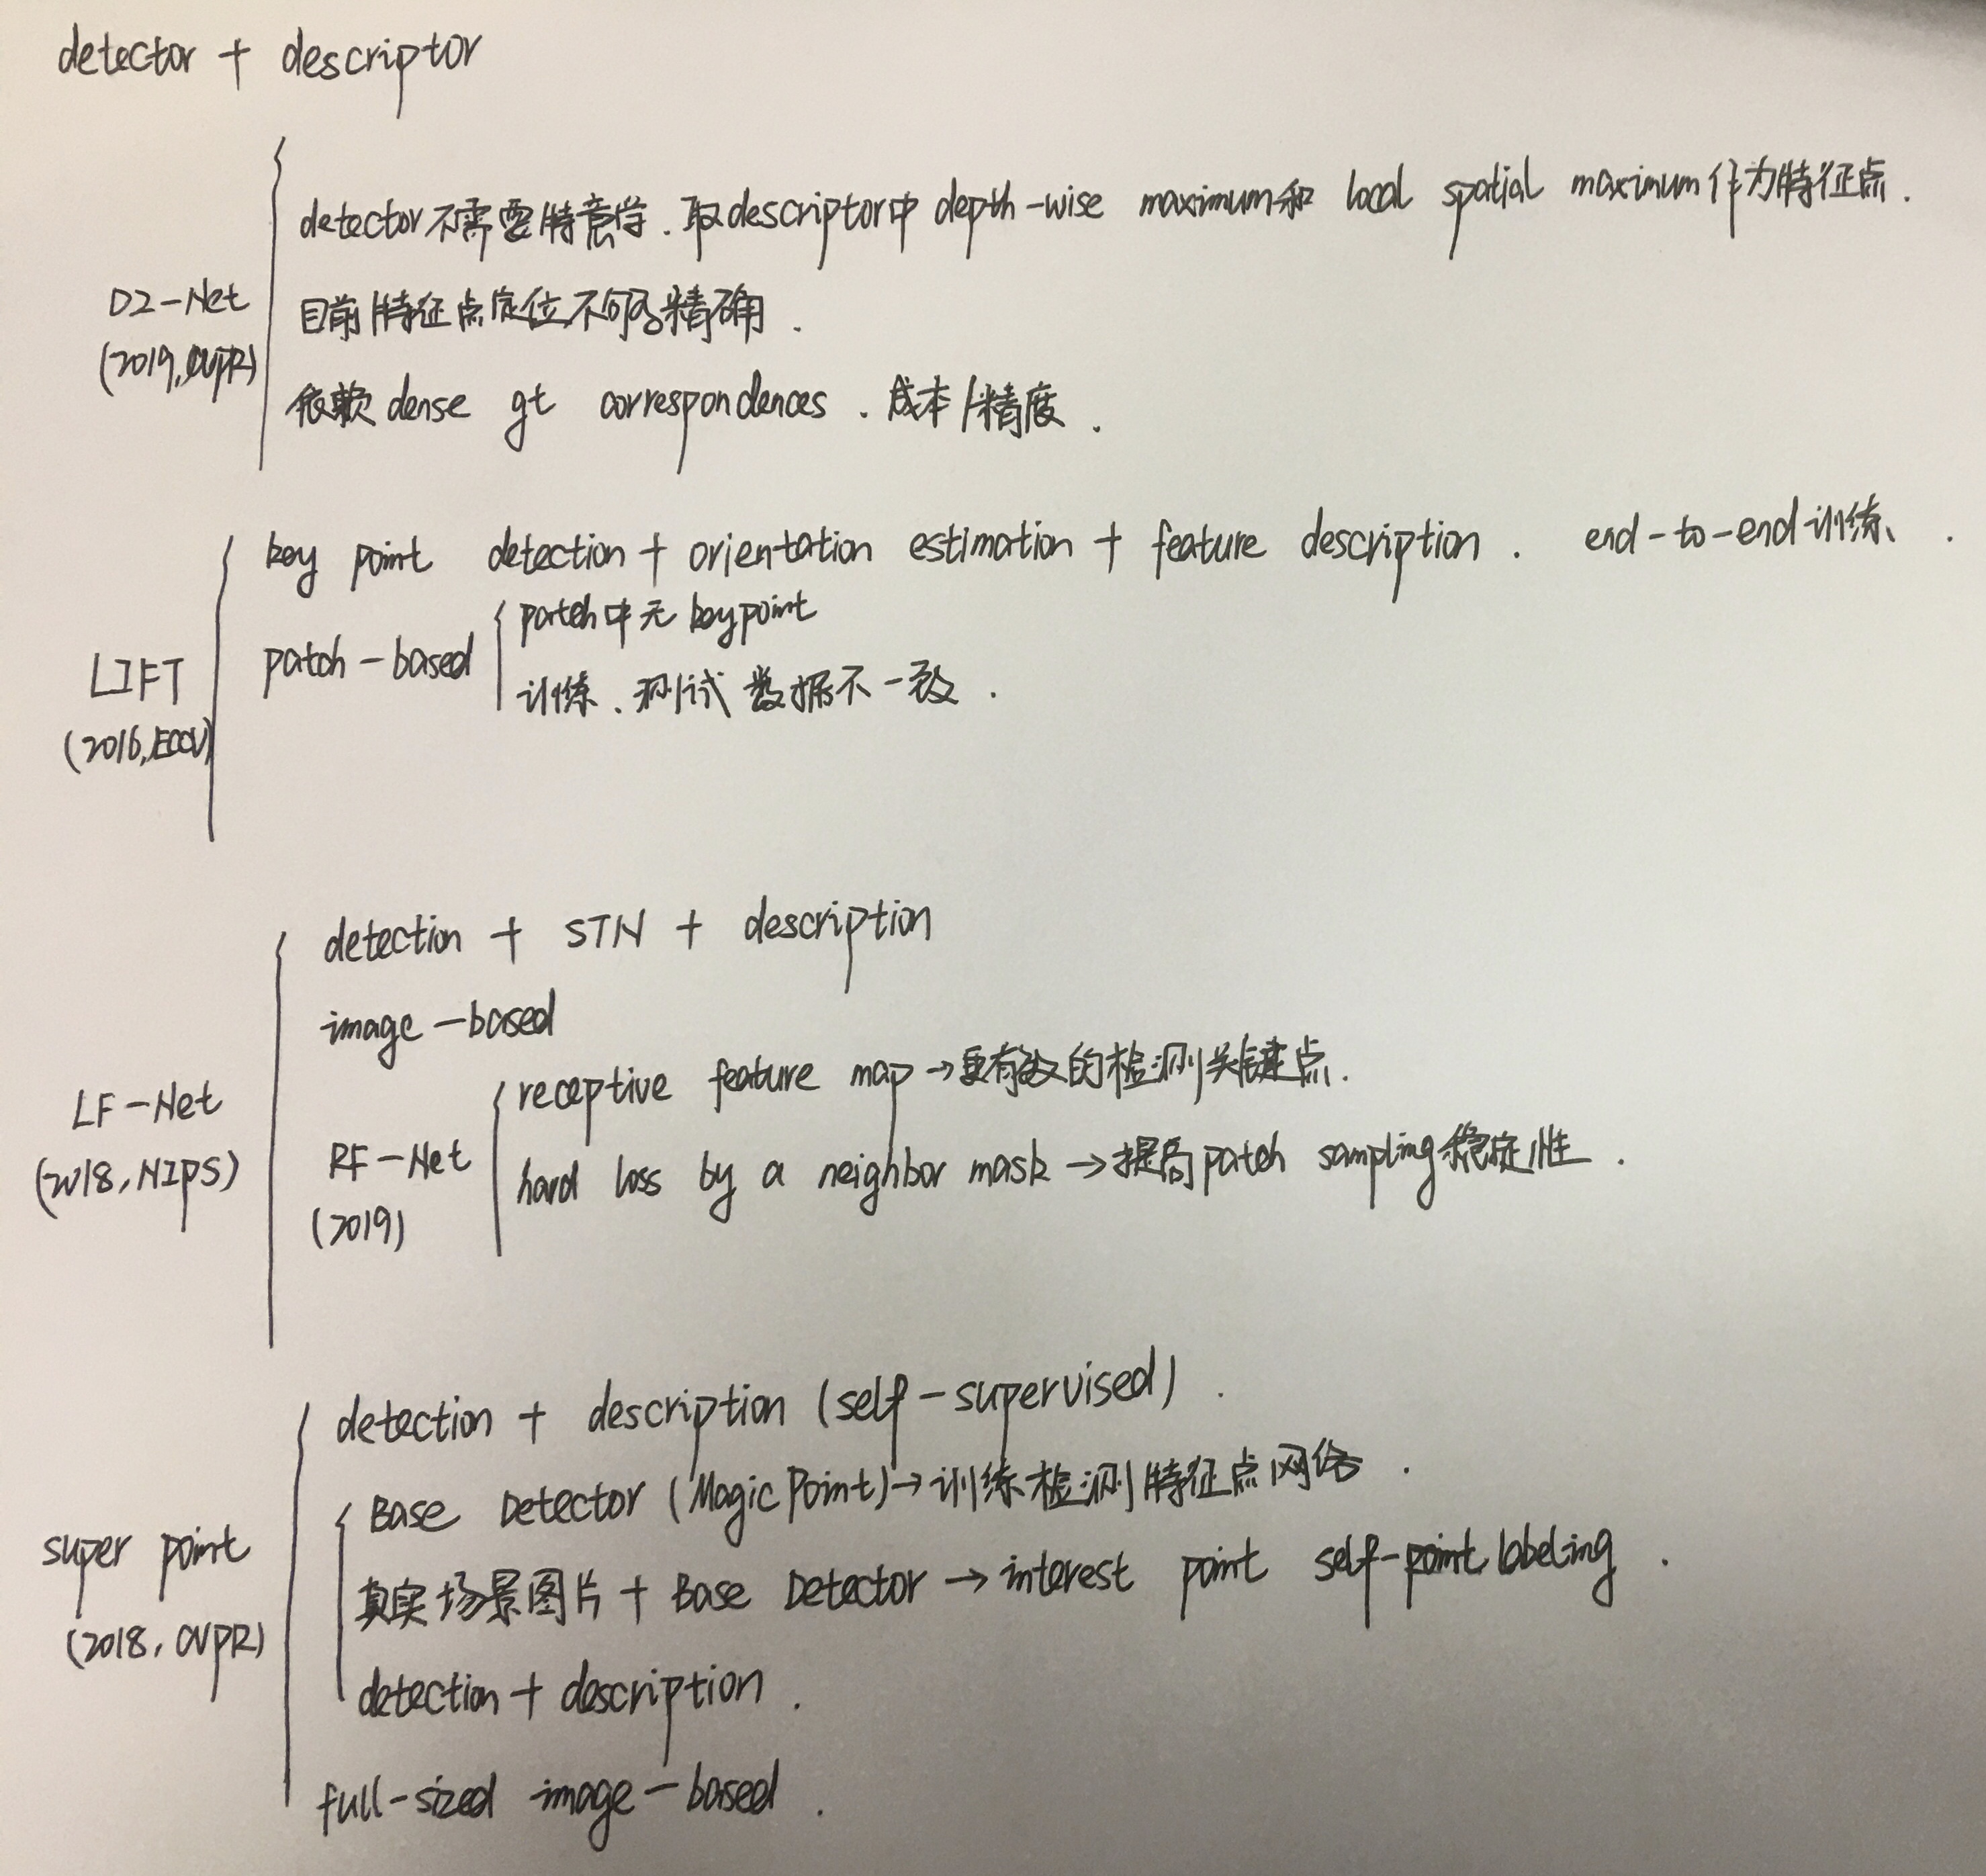 detector + descriptor
D2-Net
(2019,CVPR)
detector不需要特意学.取descriptor中 depth-wise maximum和 local spatial maximum作为特征点.
目前特征点定位不够精确.
依赖dense gt correspondences.成本/精度.
LIFT
(2016,ECCV)
key point detection + orientation estimation + feature description. end-to-end训练.
patch-based
patch中无keypoint
训练、测试数据不一致.
LF-Net
(2018,NIPS)
detection + STN + description
image-based
RF-Net
(2019)
receptive feature map→更有效的检测关键点.
hard loss by a neighbor mask→提高patch sampling稳定性.
super point
(2018, CVPR)
detection + description (self-supervised).
Base Detector (Magic Point)→训练检测特征点网络.
真实场景图片 + Base Detector → interest point self-point labeling.
detection + description.
full-sized image-based.